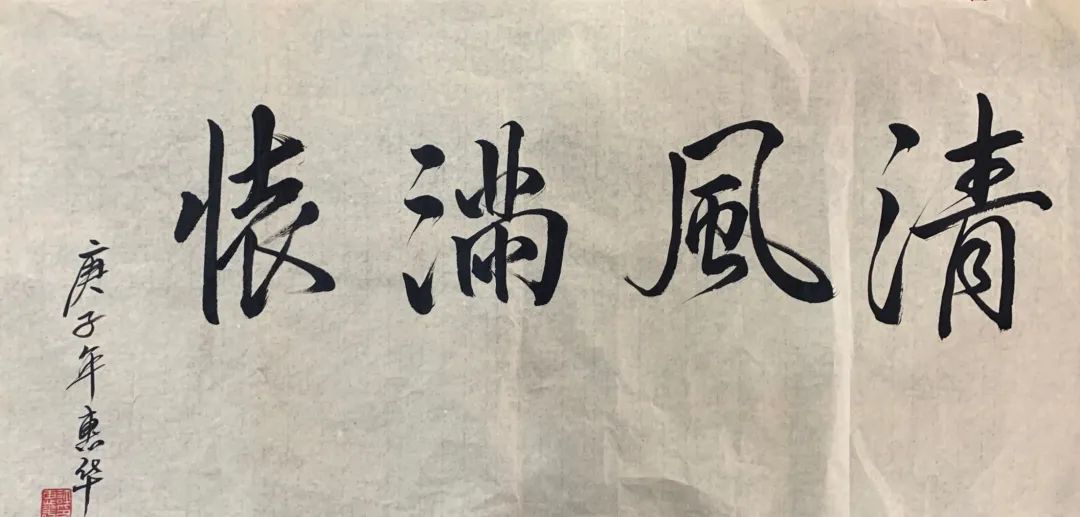 清風滿懷
庚子年惠华